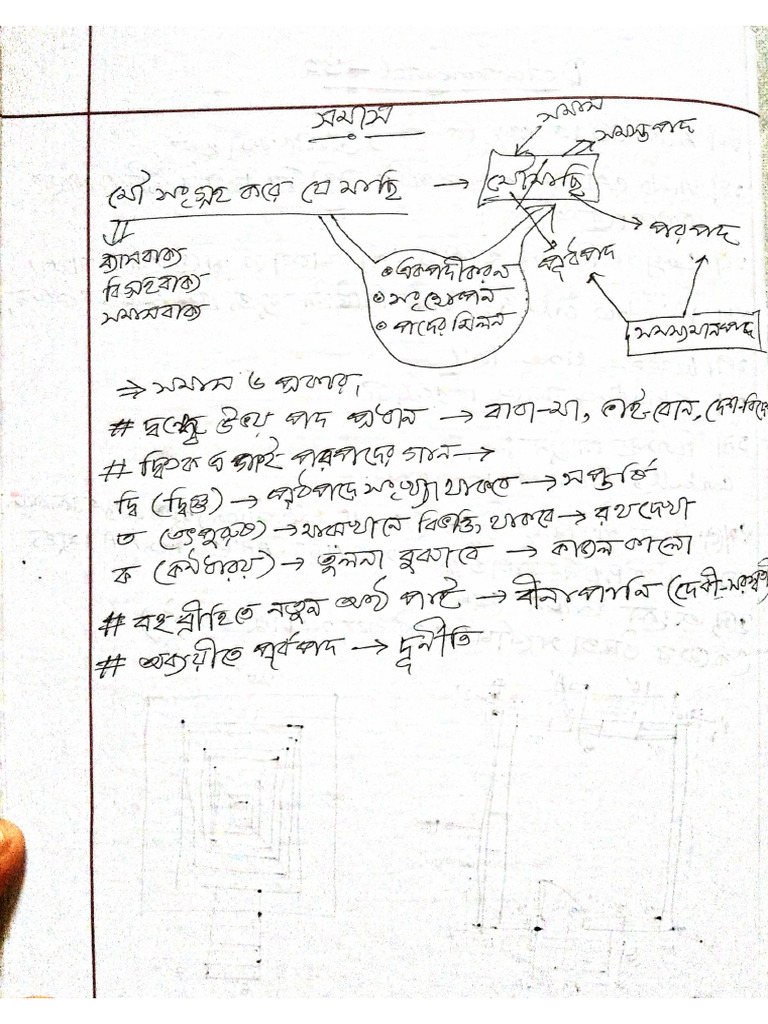 সমাস
সমাস
সমস্তপদ
মৌ সংগ্রহ করে যে মাছি → মৌমাছি
পরপদ
পূর্বপদ
ব্যাসবাক্য
বিগ্রহবাক্য
সমাসবাক্য
একপদীকরন
সংক্ষেপন
পদের মিলন
সমস্যমানপদ
⇒ সমাস ৬ প্রকার।
# দ্বন্দ্বে উভয় পদ প্রধান → বাবা-মা, ভাই-বোন, দেশ-বিদেশ
# দ্বিতক এ পাই পরপদের গান →
দ্বি (দ্বিগু) → পূর্বপদে সংখ্যা থাকবে → সপ্তর্ষি
ত (তৎপুরুষ) → মাঝখানে বিভক্তি থাকবে → রথদেখা
ক (কর্মধারয়) → তুলনা বুঝাবে → কাজল কালো
# বহুব্রীহিতে নতুন অর্থ পাই → বীনাপানি (দেবী-সরস্বতী
# অব্যয়ীতে পূর্বপদ → দুর্নীতি